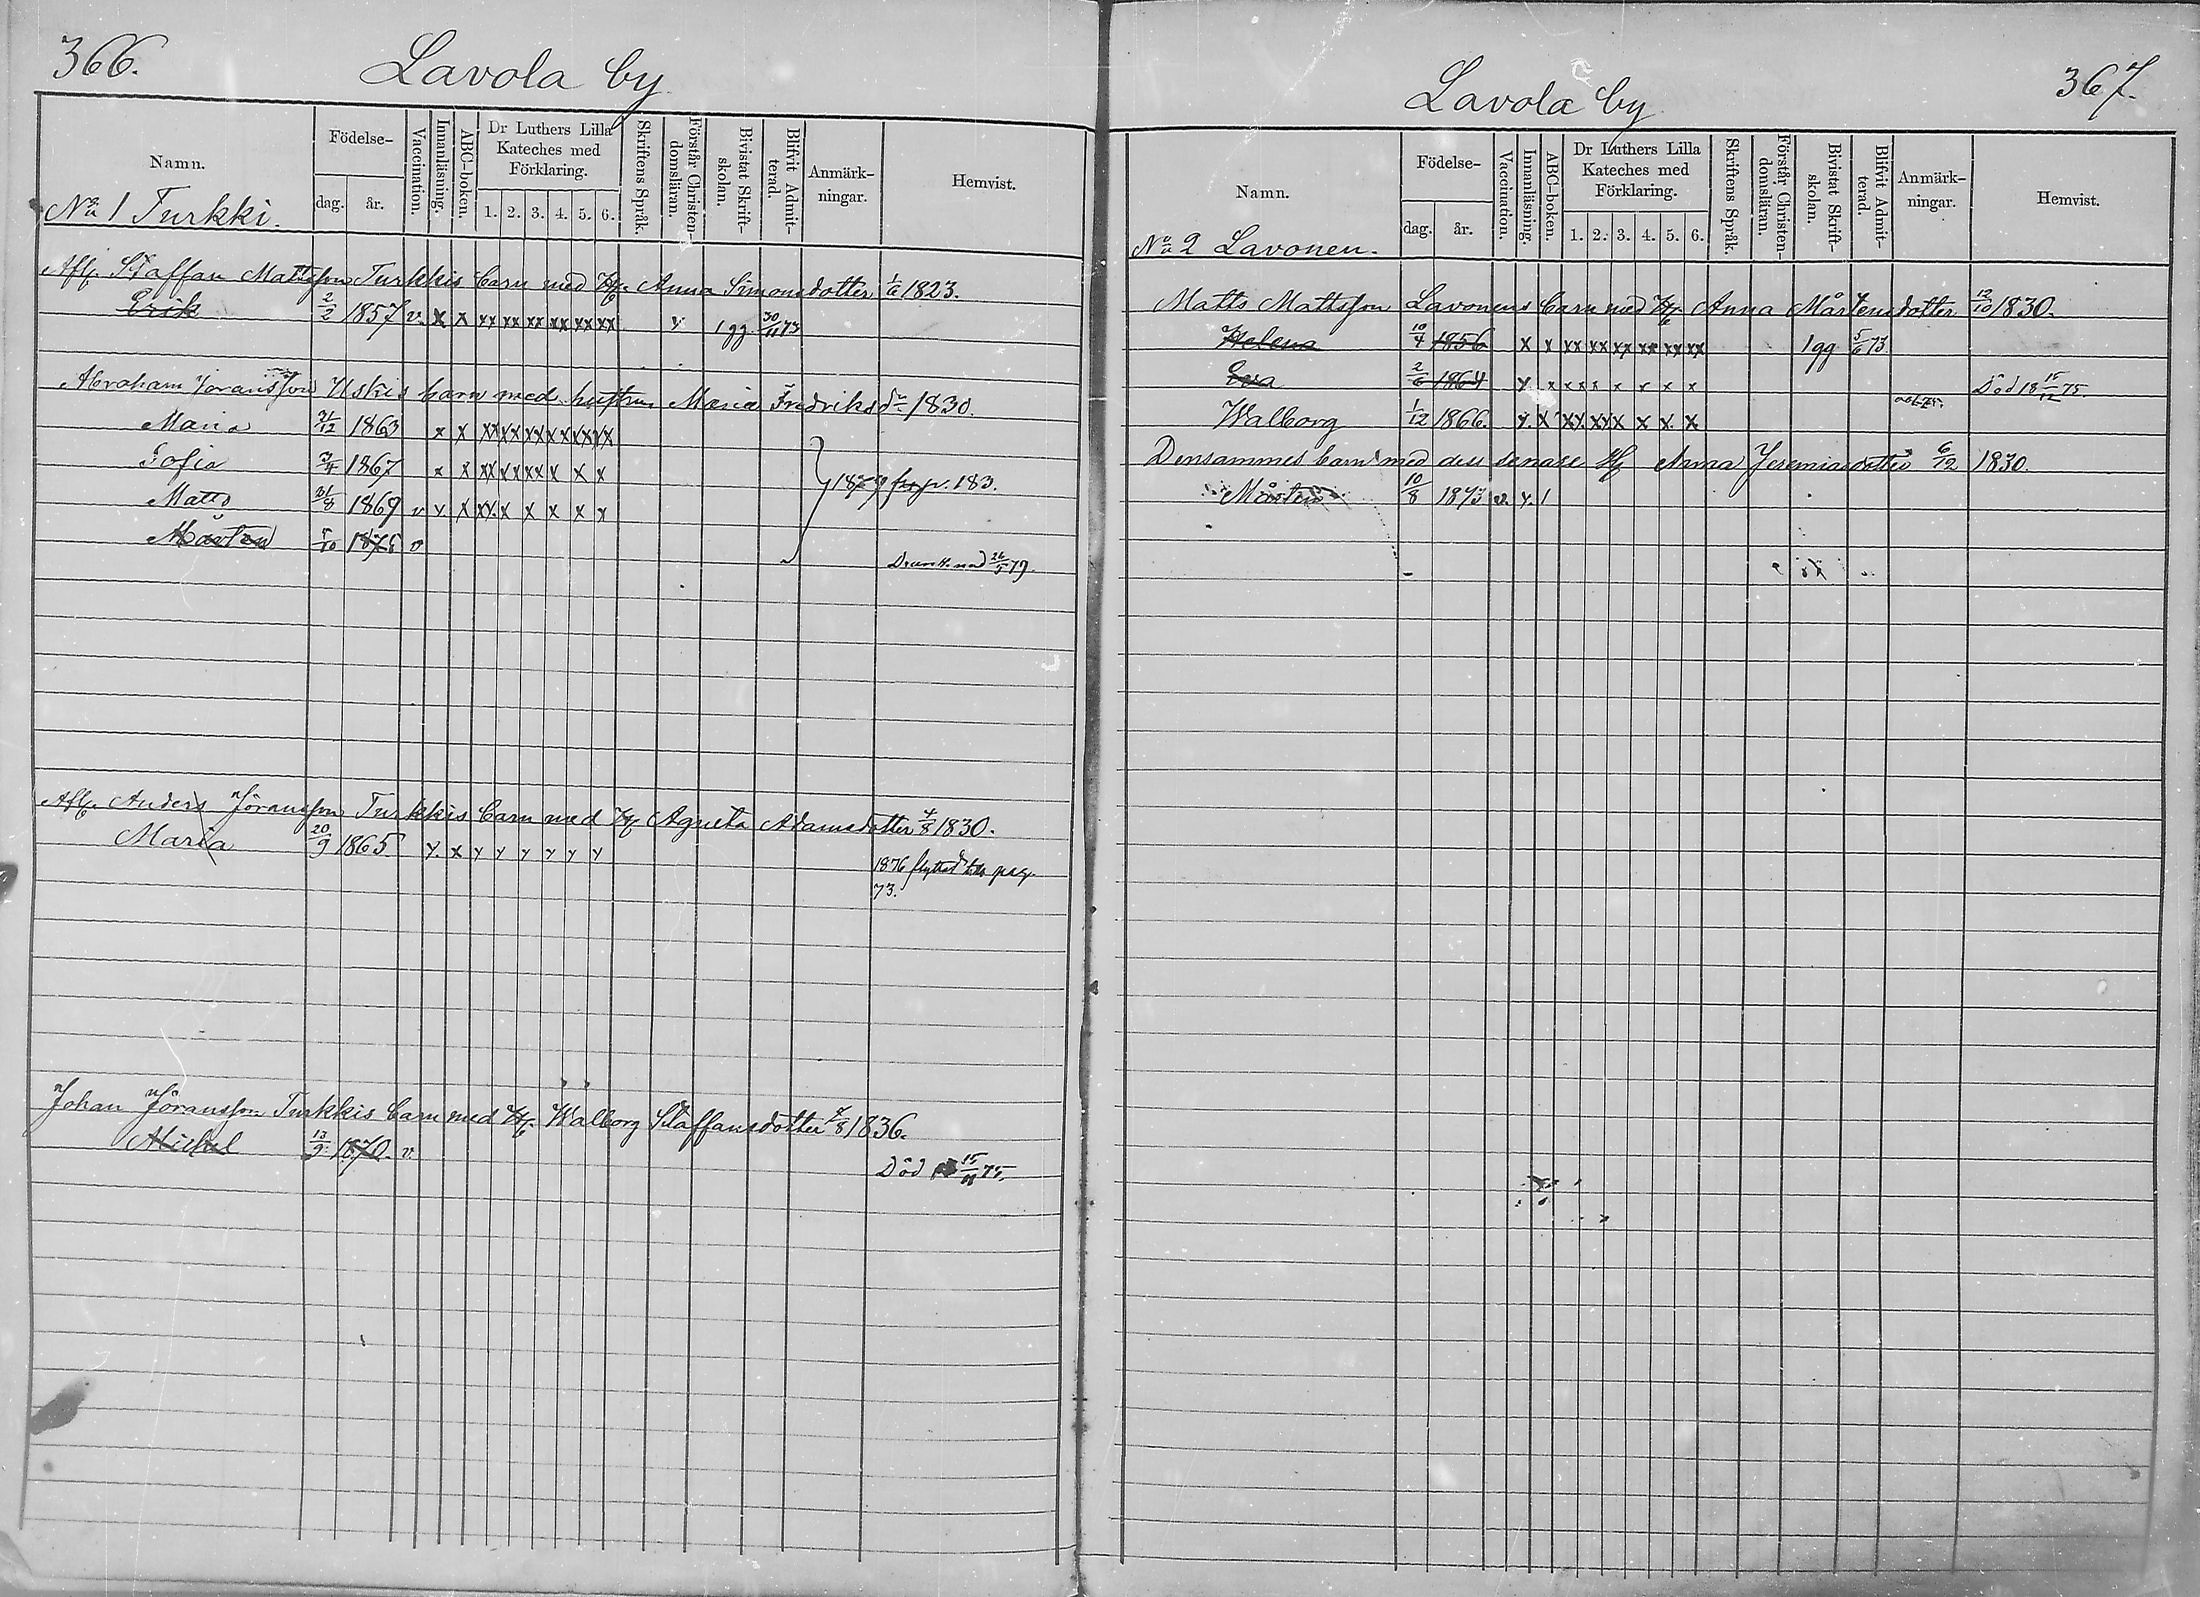 366.
Lavola by
Namn.
Födelse-
dag.
år.
Vaccination.
Innanläsning.
ABC-boken.
Dr Luthers Lilla
Kateches med
Förklaring.
1. 2. 3. 4. 5. 6.
Skriftens Språk.
Förstår Christen-
domsläran.
Bivistat Skrift-
skolan.
Blifvit Admit-
terad.
Anmärk-
ningar.
Hemvist.
No 1 Turkki.
Afl. Staffan Mattsson Turkkis barn med H. Anna Simonsdotter 1/6 1823.
Erik 2/2 1857 v. x x xx xx xx xx xx xx v 1 gg 30/11 73
Abraham Göransson Uskis barn med hustrun Maria Fredriksdr 1830.
Maria 31/12 1863 x x
Sofia 3/4 1867 x x
1879 pag. 183.
Matts 21/8 1869 v
Mårten 5/10 1875 v
Drunknad 26/5 79.
Afl. Anders Jöransson Turkkis barn med H. Agneta Adamsdotter 4/8 1830.
Maria 20/9 1865 y. x y y y y y y
1876 flyttad till pag.
73.
Johan Jöransson Turkkis barn med H. Walborg Staffansdotter 4/8 1836.
Michel 13/9 1870. v.
Död 15/11 75.
Lavola by
367.
Namn.
Födelse-
dag.
år.
Vaccination.
Innanläsning.
ABC-boken.
Dr Luthers Lilla
Kateches med
Förklaring.
1. 2. 3. 4. 5. 6.
Skriftens Språk.
Förstår Christen-
domsläran.
Bivistat Skrift-
skolan.
Blifvit Admit-
terad.
Anmärk-
ningar.
Hemvist.
No 2 Lavonen.
Matts Mattsson Lavonens barn med H. Anna Mårtensdotter 12/10 1830.
Helena 10/4 1856 x x xx xx xx xx xx xx 1 gg 5/6 73
Eva 2/6 1864
Död 18 15/12 75.
Walborg 1/12 1866.
Densammes barn med dess senare H. Anna Jeremiasdotter 6/12 1830.
Mårten 10/8 1873 v. y. 1